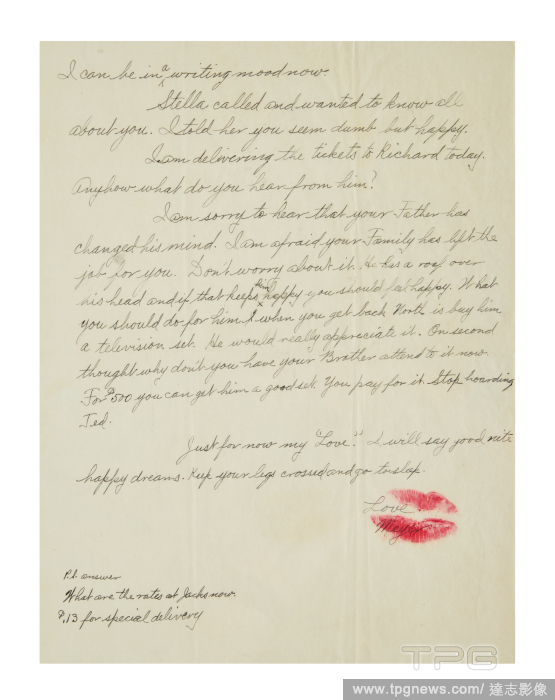 I can be in a writing mood now.
Stella called and wanted to know all
about you. I told her you seem dumb but happy.
I am delivering the tickets to Richard today.
Anyhow what do you hear from him?
I am sorry to hear that your Father has
changed his mind. I am afraid your Family has left the
job for you. Don't worry about it. He has a roof over
his head and if that keeps him happy you should feel happy. What
you should do for him when you get back North is buy him
a television set. He would really appreciate it. On second
thought why don't you have your Brother attend to it now
For $500 you can get him a good set. You pay for it. Stop hoarding
Ted.
Just for now my "Love". I will say good nite
happy dreams. Keep your legs crossed and go to slap.
Love
P.S. answer
What are the rates at Jacks now.
$.13 for special delivery
TPG
www.tpgnews.com / 達志影像